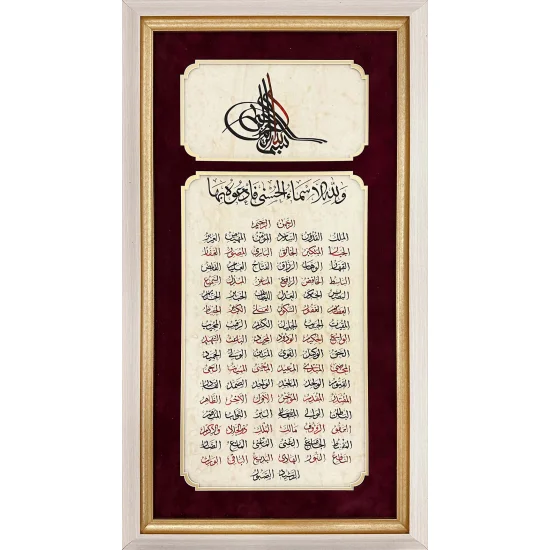 بسم الله الرحمن الرحيم
ولله الاسماء الحسنى فادعوه بها
الرحمن الرحيم
الملك القدوس السلام المؤمن المهيمن العزيز
الجبار المتكبر الخالق البارئ المصور الغفار
القهار الوهاب الرزاق الفتاح العليم القابض
الباسط الخافض الرافع المعز المذل السميع
البصير الحكم العدل اللطيف الخبير الحليم
العظيم الغفور الشكور العلي الكبير الحفيظ
المقيت الحسيب الجليل الكريم الرقيب المجيب
الواسع الحكيم الودود المجيد الباعث الشهيد
الحق الوكيل القوي المتين الولي الحميد
المحصي المبدئ المعيد المحيي المميت الحي
القيوم الواجد الماجد الواحد الصمد القادر
المقتدر المقدم المؤخر الاول الاخر الظاهر
الباطن الوالي المتعالي البر التواب المنتقم
العفو الرؤف مالك الملك ذو الجلال والاكرام
المقسط الجامع الغني المغني المانع الضار
النافع النور الهادي البديع الباقي الوارث
الرشيد الصبور